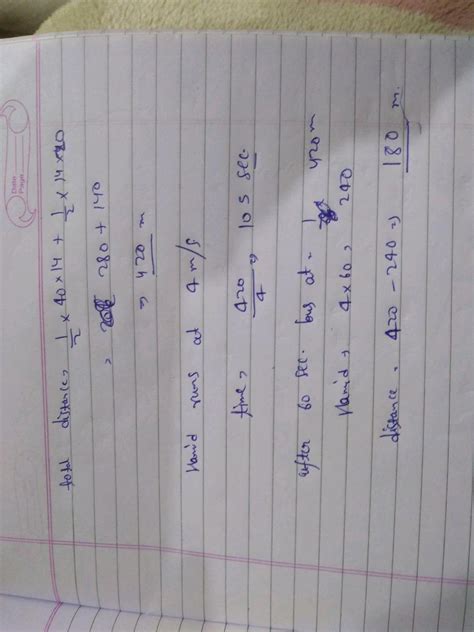 Date
Page
total distance, 1/2 × 40 × 14 + 1/2 × 14 × 20
, 280 + 140
⇒ 420 m
Hamid runs at 4 m/s
time, 420/4 ⇒ 105 sec.
after 60 sec. bus at = 420 m
Hamid, 4 × 60, 240
distance, 420 - 240 ⇒ 180 m.